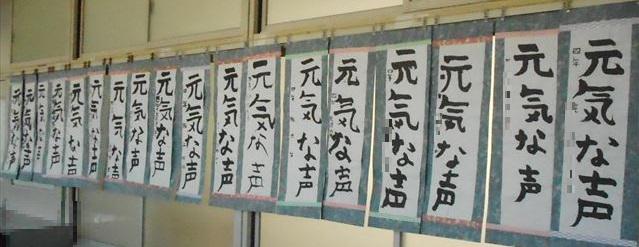 元気な声
四年
元気な声
元気な声
元気な声
元気な声
元気な声
元気な声
元気な声
元気な声
元気な声
元気な声
元気な声
元気な声
元気な声
元気な声
元気な声
元気な声
元気な声